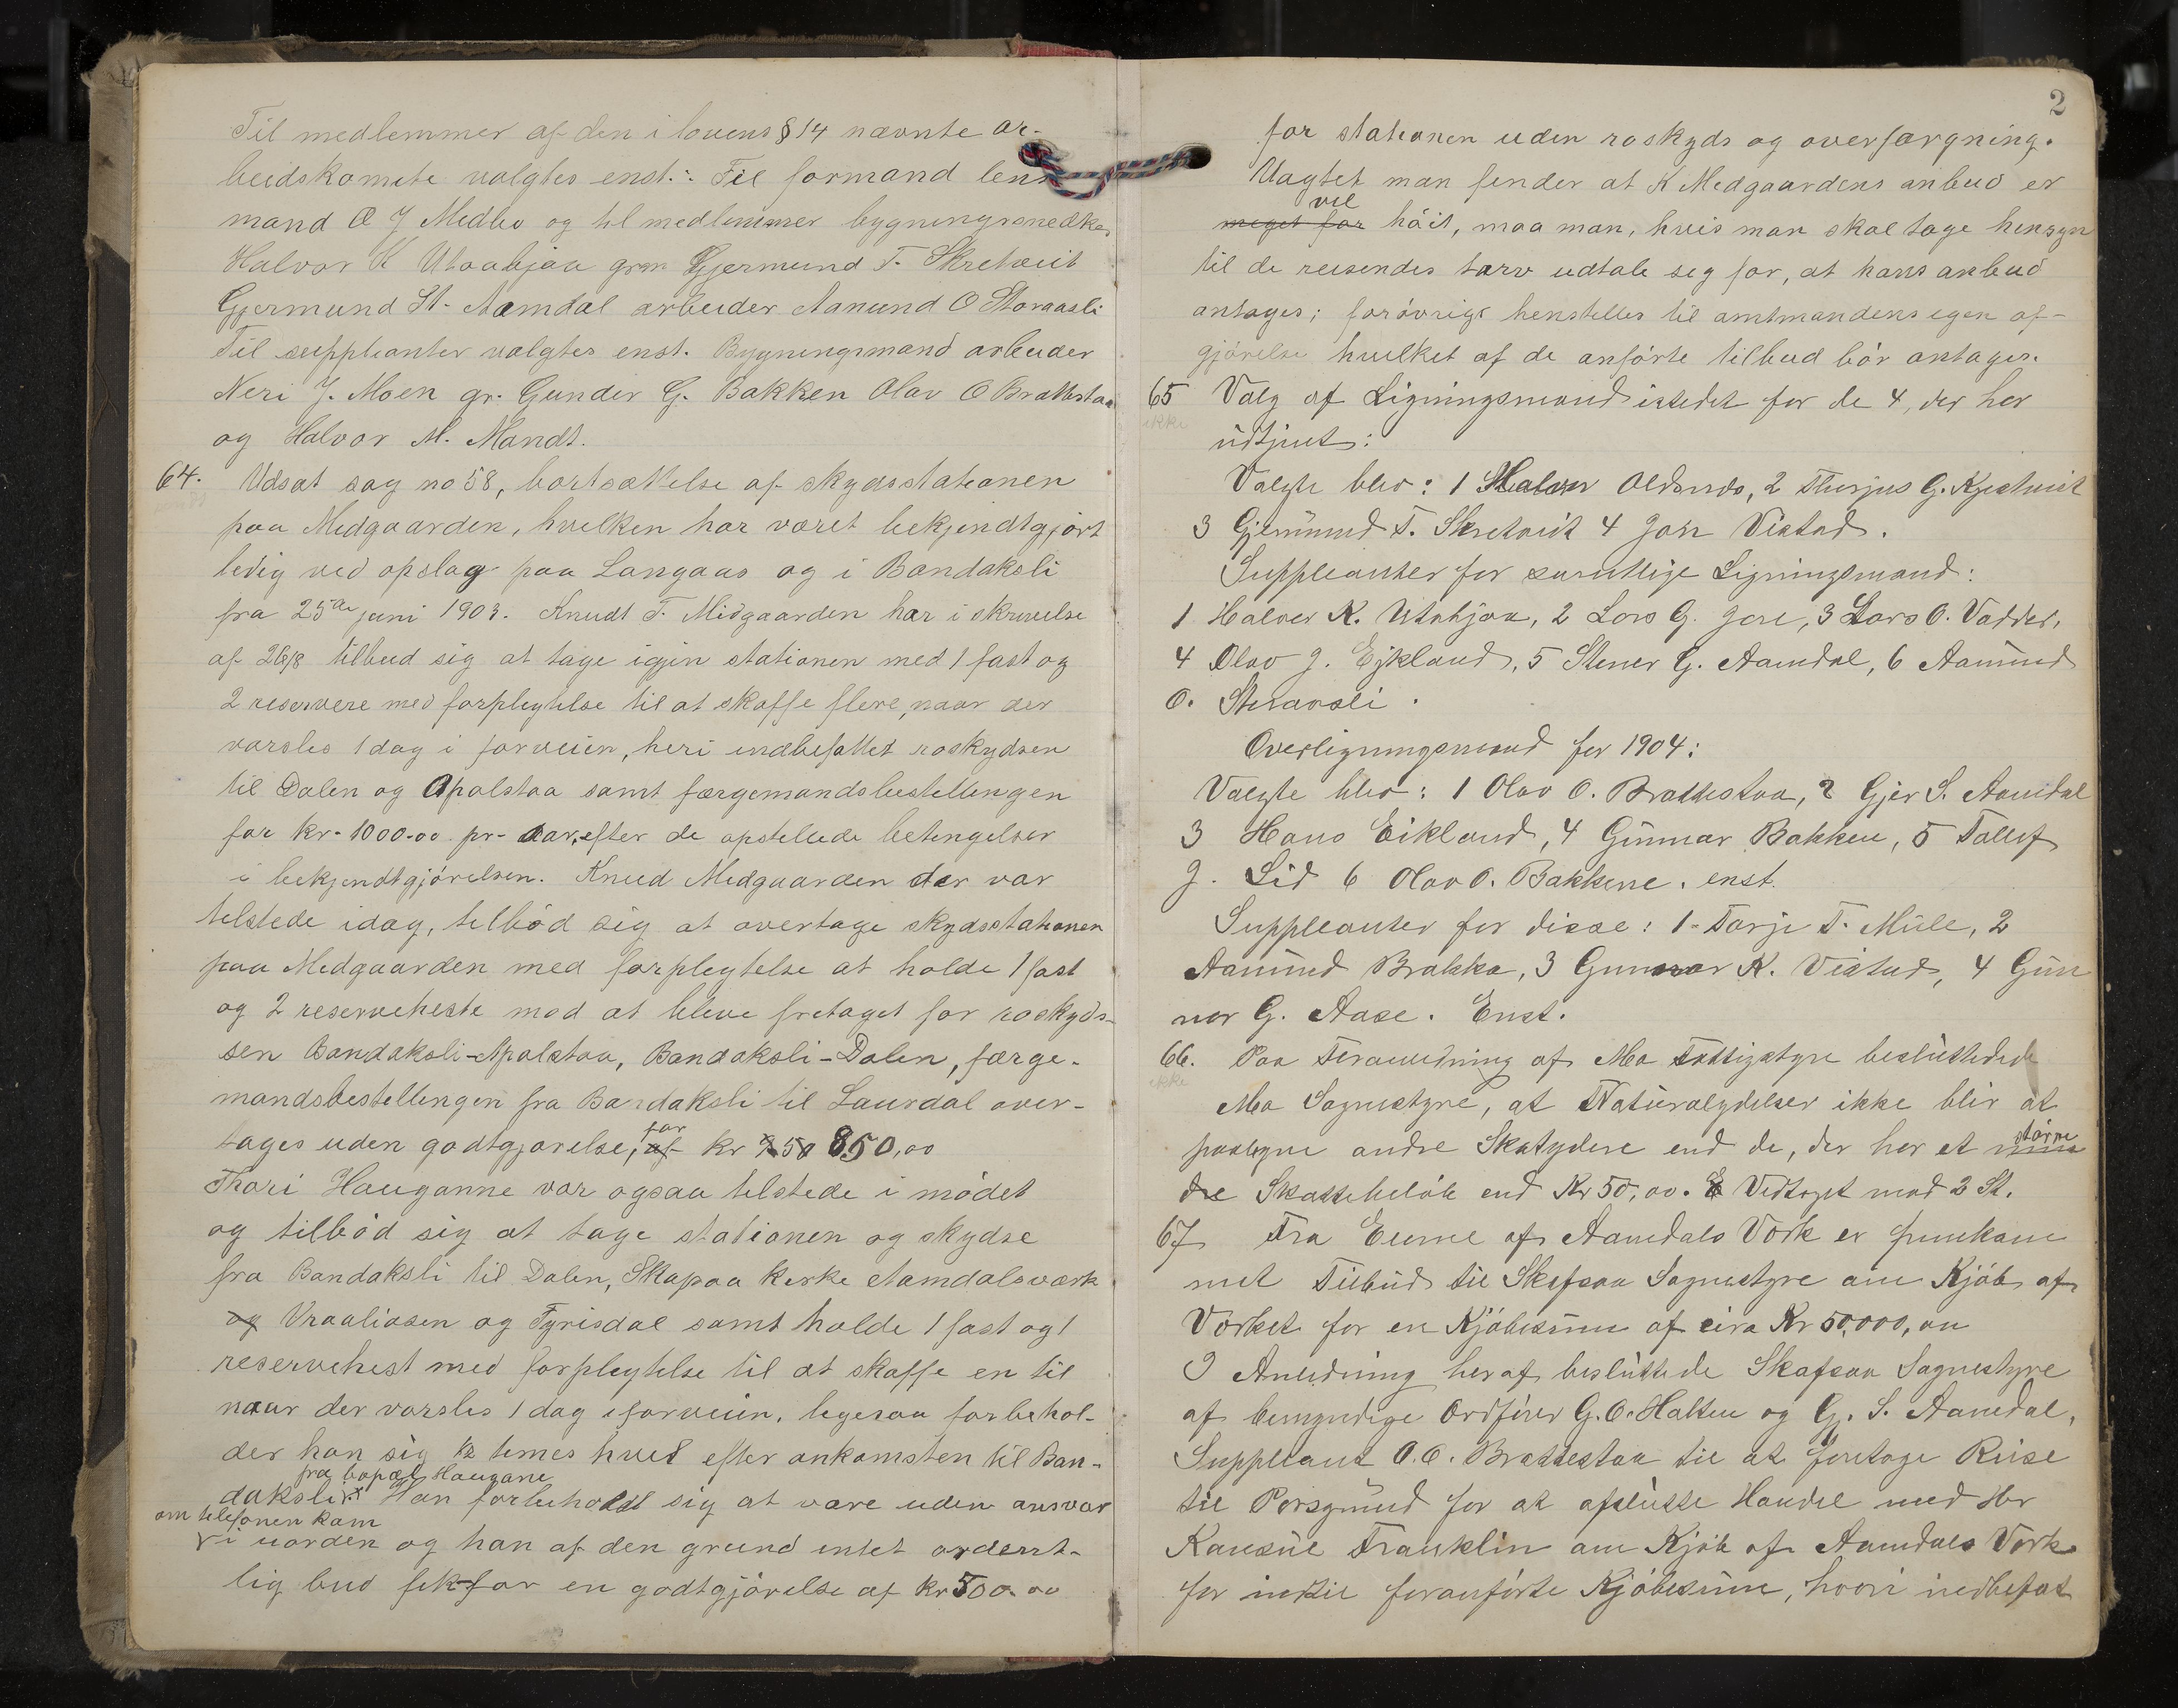 Til medlemmer af den i lovens § 14 nævnte ar-
beidskomite valgtes enst.: Til formand lens
mand O J Medbo og til medlemmer bygningssnedker
Halvor K Utaabjaa grm Gjermund T. Skretveit
Gjermund St. Aamdal arbeider Aanund O Storaasli
Til suppleanter valgtes enst. Bygningsmand arbeider
Neri J. Moen gr. Gunder G. Bakken Olav O Brattestaa
og Halvor M. Mandt.
64. Udsat sag no 58, bortsættelse af skydsstationen
paa Midgaarden, hvilken har været bekjendtgjort
ledig ved opslag paa Langaas og i Bandaksli
fra 25de juni 1903. Knudt T. Midgaarden har i skrivelse
af 26/8 tilbud sig at tage igjen stationen med 1 fast og
2 reservere med forpleytelse til at skaffe flere, naar der
varsles 1 dag i forveien, heri indbefattet roskydsen
til Dalen og Apalstaa samt færgemandsbestellingen
for kr. 1000.00 pr. aar, efter de opstellede betengelser
i bekjendtgjórelsen. Knud Medgaarden der var
telstede idag, telbód sig at overtage skydsstationen
paa Medgaarden med forpleytelse at holde 1 fast
og 2 reserveheste mod at bleve fretaget for roskyds-
sen Bandaksli-Apalstaa, Bandaksli-Dalen, færge-
mandsbestellingen fra Bandaksli til Laurdal over-
tages uden godtgjørelse, for af kr 850,00
Thori Hauganne var ogsaa telstede i módet
og tilbód sig at tage stationen og skydse
fra Bandaksli til Dalen, Skapaa kerke Aamdalsværk
og Vraaliosen og Tyrisdal samt holde 1 fast og 1
reservehest med forpleytelse til at skaffe en til
naar der varsles 1 dag i forveien. legesaa forbehol-
der han sig 1/2 times hvil efter ankomsten til Ban-
fra bopæl Haugane
daksli. Han forbeholdt sig at være uden ansvar
om telefonen kom
i uorden og han af den grund intet ordent-
lig bud fik for en godtgjórelse af kr 500.00
2
for stationen uden roskyds og overfærgning.
Uagtet man finder at K Medgaardens anbud er
vel
meget for hóit, maa man, hvis man skal tage hensyn
til de reisendes tarv udtale seg for, at hans anbud
antages; foróvrigt henstelles til amtmandens egen af-
gjórelse hvilket af de anfórte tilbud bór antages.
65 Valg af Ligningsmænd istedet for de 4, der har
ikke
udtjent:
Valgte blev: 1 Halvor Oldereds, 2 Thorjus G. Kjetveit
3 Gjermund T. Skretveit 4 Jon Vistad.
Suppleanter for samtlige Ligningsmænd:
1 Halvor K. Utabjaa, 2 Lars G. Jore, 3 Lars O. Vadder,
4 Olav J. Eikland, 5 Stener G. Aamdal, 6 Aanund
O. Storaasli.
Overligningsmænd for 1904:
Valgte blev: 1 Olav O. Brattestaa, 2 Gjer S. Aamdal
3 Hans Eikland, 4 Gunnar Bakken, 5 Tallef
J. Lid 6 Olav O. Bakkene. enst.
Suppleanter for disse: 1 Tarje T. Mule, 2
Aanund Brakka, 3 Gunnar K. Vistad, 4 Gun
nar G. Aase. Enst.
66. Paa Foranledning af Mo Fattigstyre besluttedede
ikke
Mo Sognestyre, at Naturalydelser ikke blir at
paalegne andre Skatydere end de, der har et større
dre Skattebeløb end Kr 50,00. Vedtaget mod 2 St.
67 Fra Eierne af Aamdals Værk er fremkom
met Tilbud til Skafsaa Sognestyre om Kjøb af
Værket for en Kjøbesum af cira Kr 50,000,00
I Anledning heraf besluttede Skafsaa Sognestyre
af bemyndige Ordfører G. O. Halten og G. S. Aamdal,
Suppleant O. O. Brattestaa til at foretage Reise
til Porsgrund for at afslutte Handel med Hr
Konsul Franklin om Kjøb af Aamdals Værk
for indtil foranførte Kjøbesum, hvori indbefat